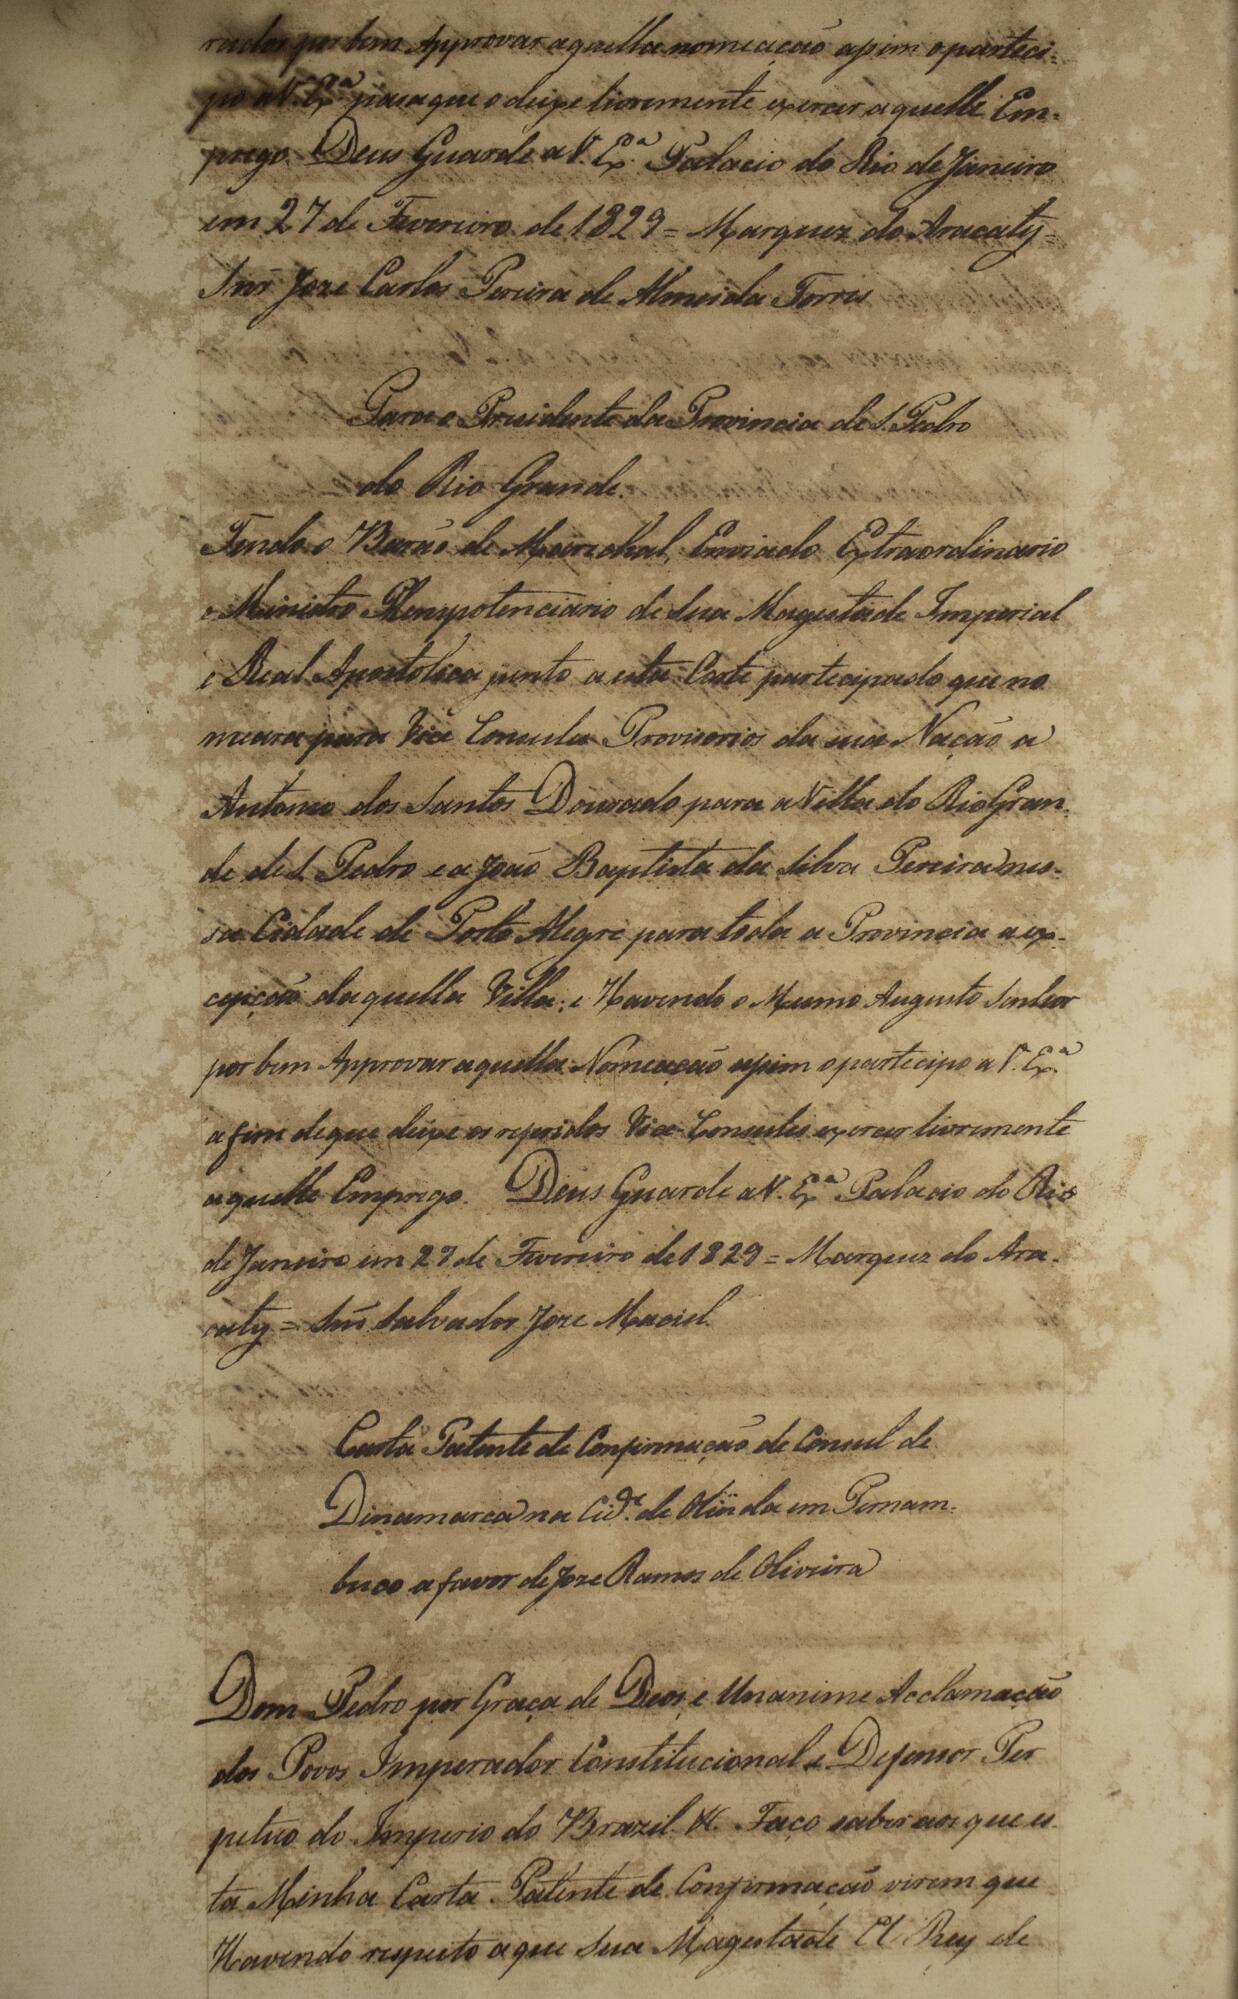 rador por bem Approvar aquella nomeação assim o parteci-
po a V. Exª para que o deixe livremente exercer aquelle Em-
prego. Deus Guarde a V. Exª Palacio do Rio de Janeiro
em 27 de Fevereiro de 1829 = Marquez do Aracaty =
Snr Joze Carlos Pereira de Almeida Torres
Para o Presidente da Provincia de S. Pedro
do Rio Grande.
Tendo o Barão de Mareschal, Enviado Extraordinario
e Ministro Plenypotenciario de Sua Magestade Imperial
e Real Apostolica junto a esta Corte participado que no
meara para Vice Consules Provisorios da sua Nação a
Antonio dos Santos Dourado para a Villa do Rio Gran
de de S. Pedro e a João Baptista da Silva Pereira nes-
sa Cidade de Porto Alegre para toda a Provincia a ex-
cepção daquella Villa; e Havendo o Mesmo Augusto Senhor
por bem Approvar aquella Nomeação assim o partecipo a V. Exª
a fim de que deixe os referidos Vice-Consules exercer livremente
aquelle Emprego. Deus Guarde a V. Exª Palacio do Rio
de Janeiro em 27 de Fevereiro de 1829 = Marquez do Ara-
caty = Snr Salvador Joze Maciel.
Carta Patente de Confirmação de Consul de
Dinamarca na Cidᵉ. de Olinda em Pernam-
buco a favor de Joze Ramos de Oliveira
Dom Pedro por Graça de Deos, e Unanime Acclamação
dos Povos Imperador Constitucional e Defensor Per
petuo do Imperio do Brazil &. Faço saber aos que es
ta Minha Carta Patente de Confirmação virem que
Havendo respeito a que Sua Magestade El Rey de